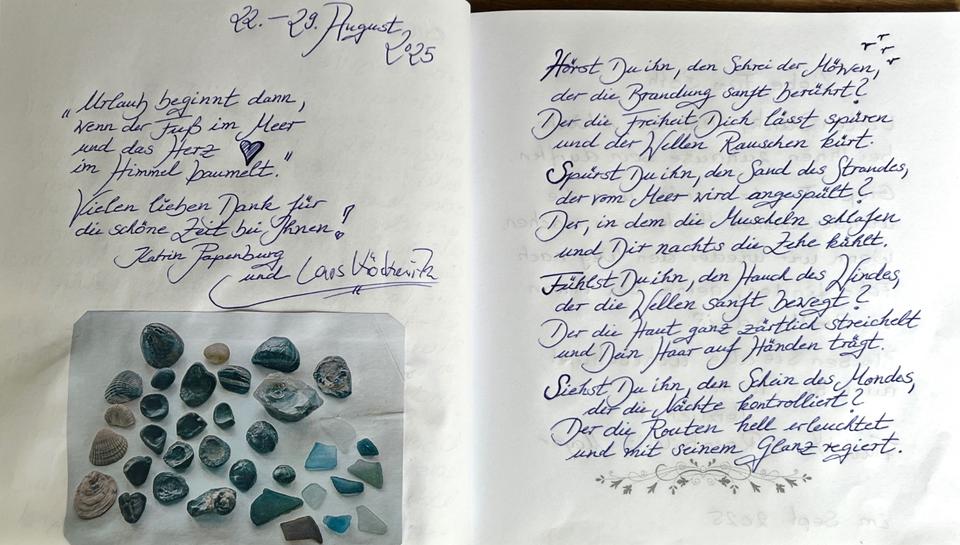 22. – 29. August
2025
„Urlaub beginnt dann,
wenn der Fuß im Meer
und das Herz
im Himmel baumelt."
Vielen lieben Dank für
die schöne Zeit bei Ihnen!
Katrin Papenburg
und Lars
Hörst Du ihn, den Schrei der Möwen,
der die Brandung sanft berührt?
Der die Freiheit Dich lässt spüren
und der Wellen Rauschen kürt.
Spürst Du ihn, den Sand des Strandes,
der vom Meer wird angespült?
Der, in dem die Muscheln schlafen
und Dir nachts die Zehe kühlt.
Fühlst Du ihn, den Hauch des Windes,
der die Wellen sanft bewegt?
Der die Haut ganz zärtlich streichelt
und Dein Haar auf Händen trägt.
Siehst Du ihn, den Schein des Mondes,
der die Nächte kontrolliert?
Der die Routen hell erleuchtet
und mit seinem Glanz regiert.